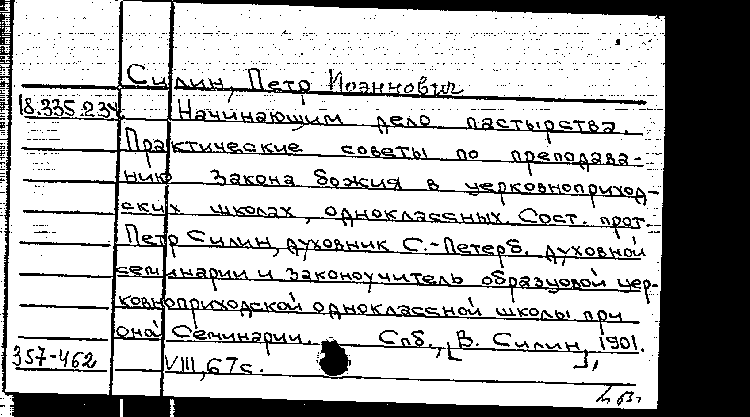 Силин, Петр Иоаннович
18.335.2.34. Начинающим дело пастырства.
Практические советы по преподава-
нию Закона божия в церковноприход-
ских школах, одноклассных. Сост. прот.
Петр Силин, духовник С.-Петерб. духовной
семинарии и законоучитель образцовой цер-
ковноприходской одноклассной школы при
оной Семинарии. Спб., [В. Силин], 1901.
357-462 VIII, 67 с.